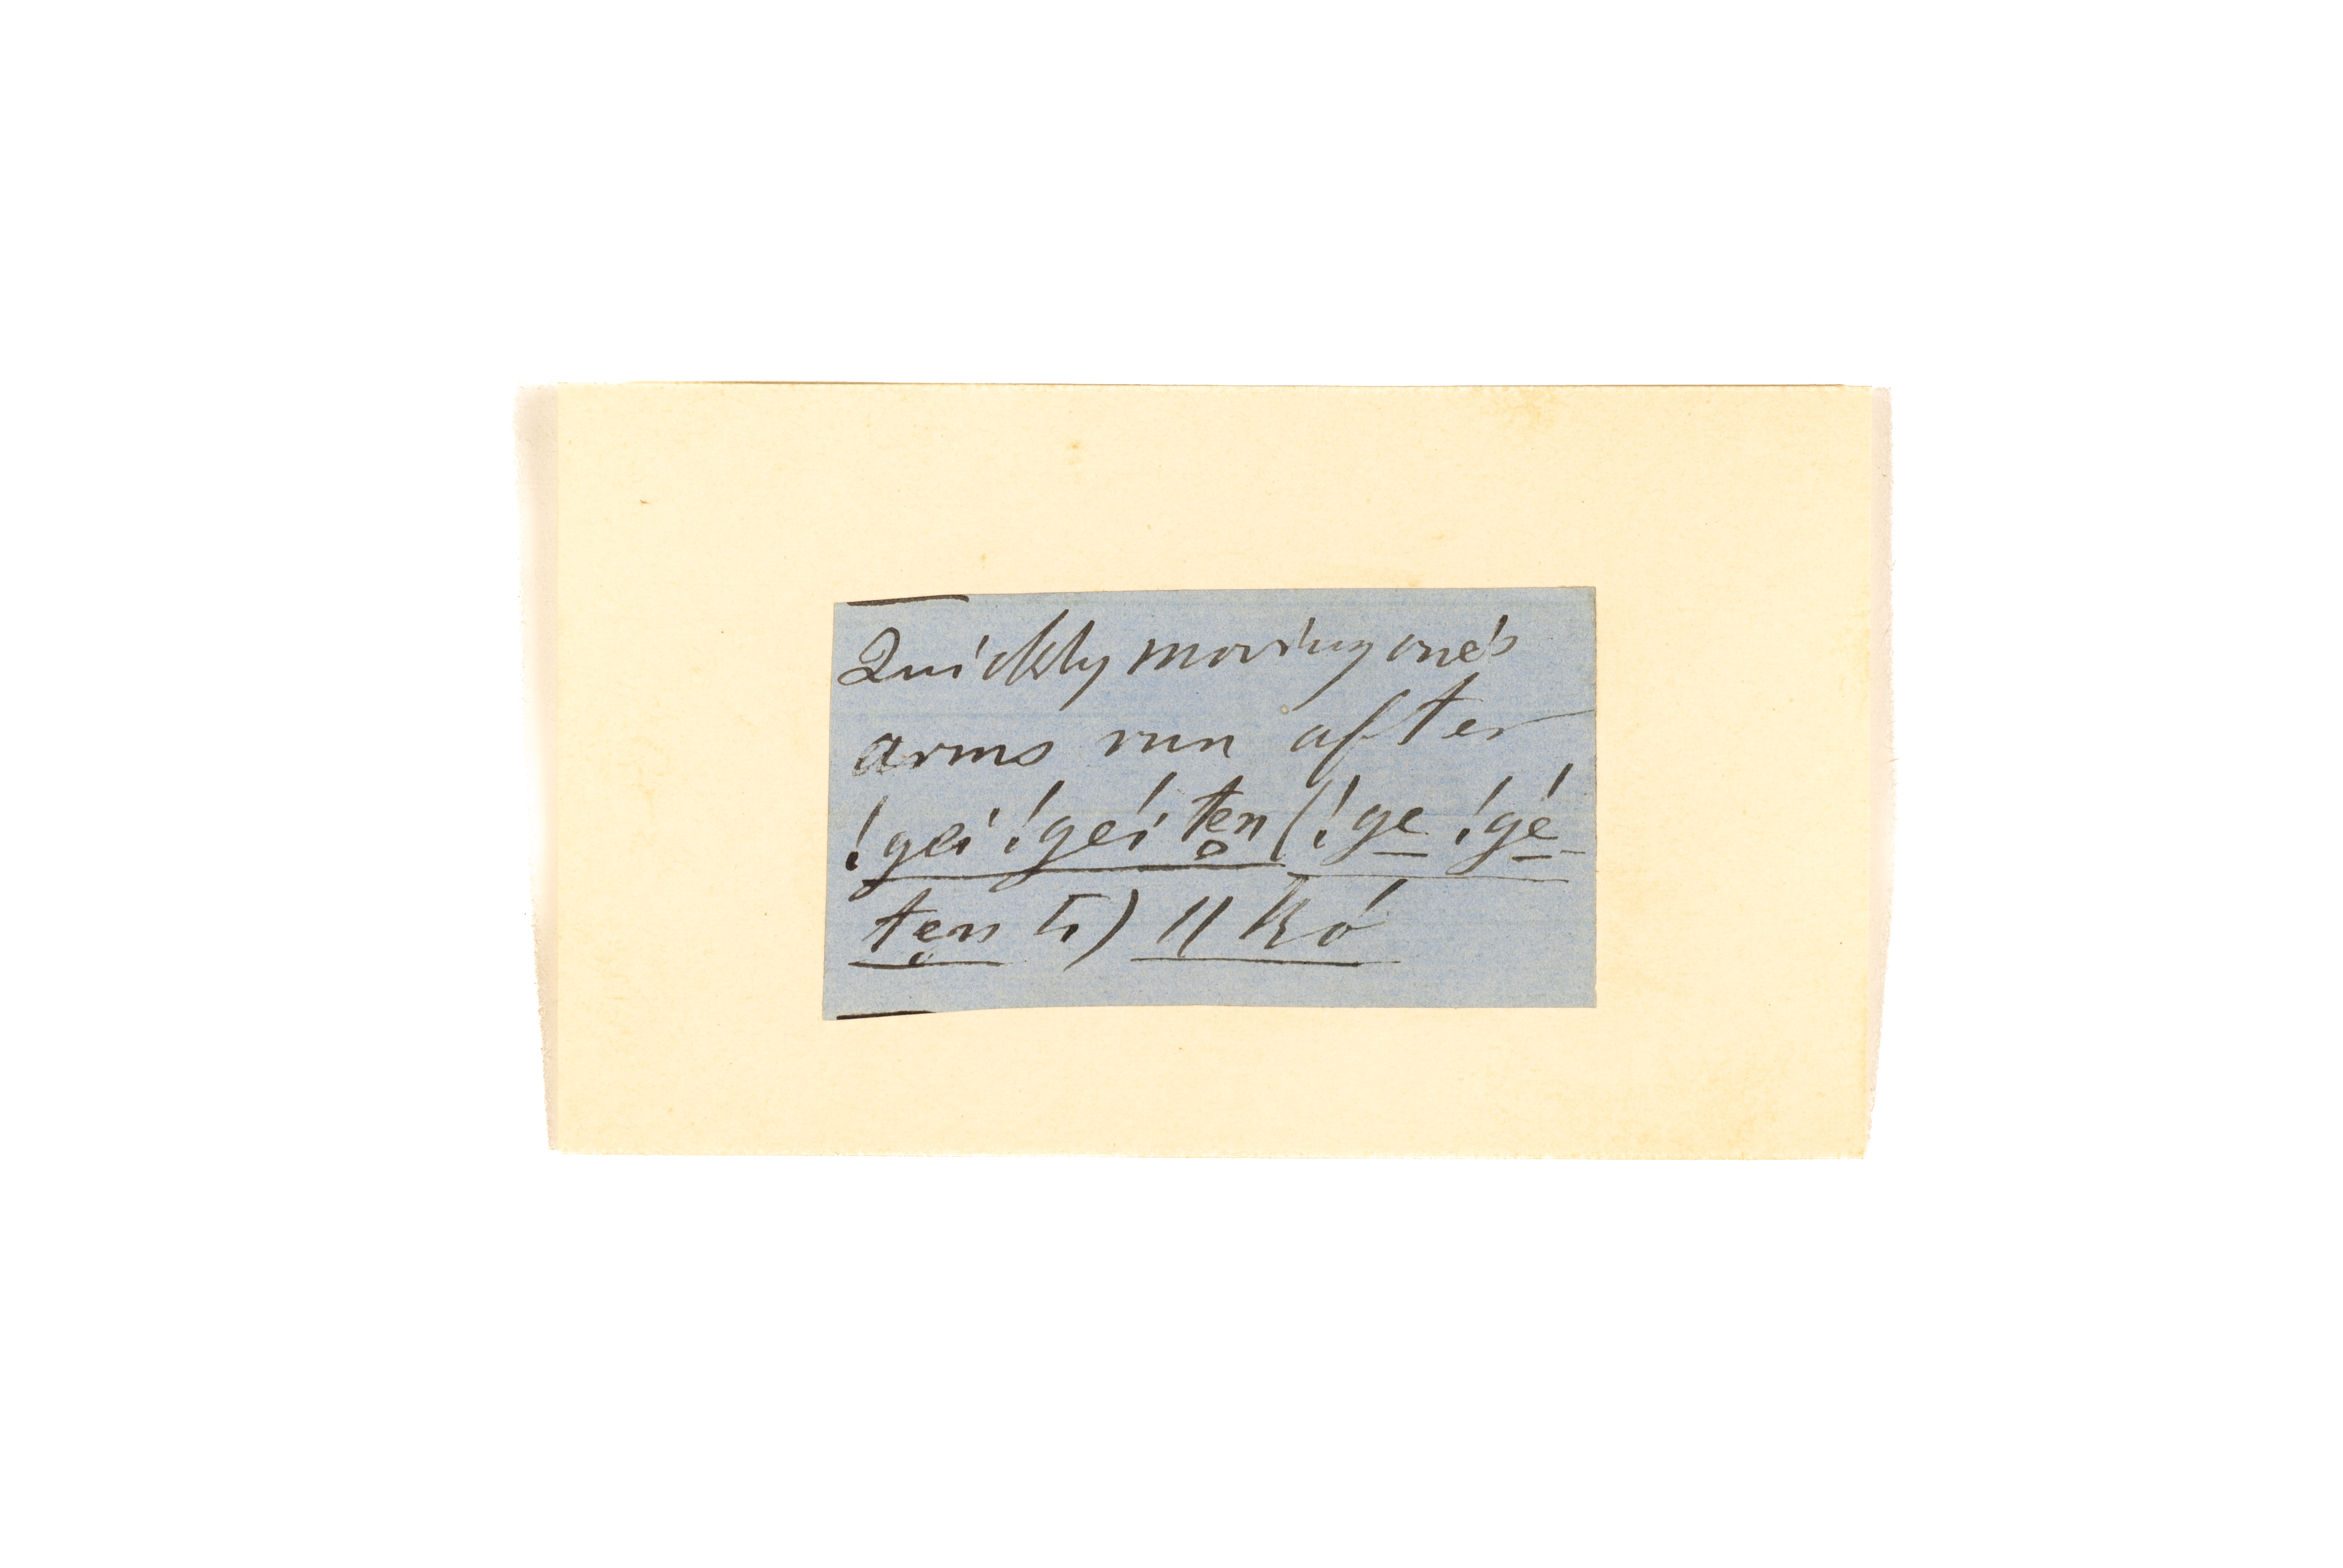 Quickly moving one's
arms run after
!gei !géi te̥n (!ge̱ !gé̱-
te̥n ti) ǁkó